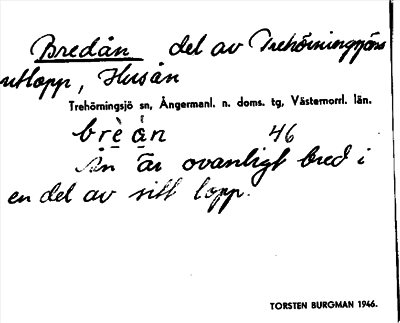 Bredån del av Trehörningsjöns
utlopp, Husån
Trehörningsjö sn, Ångermanl. n. doms. tg, Västernorrl. län.
brè ån 46
Ån är ovanligt bred i
en del av sitt lopp.
TORSTEN BURGMAN 1946.